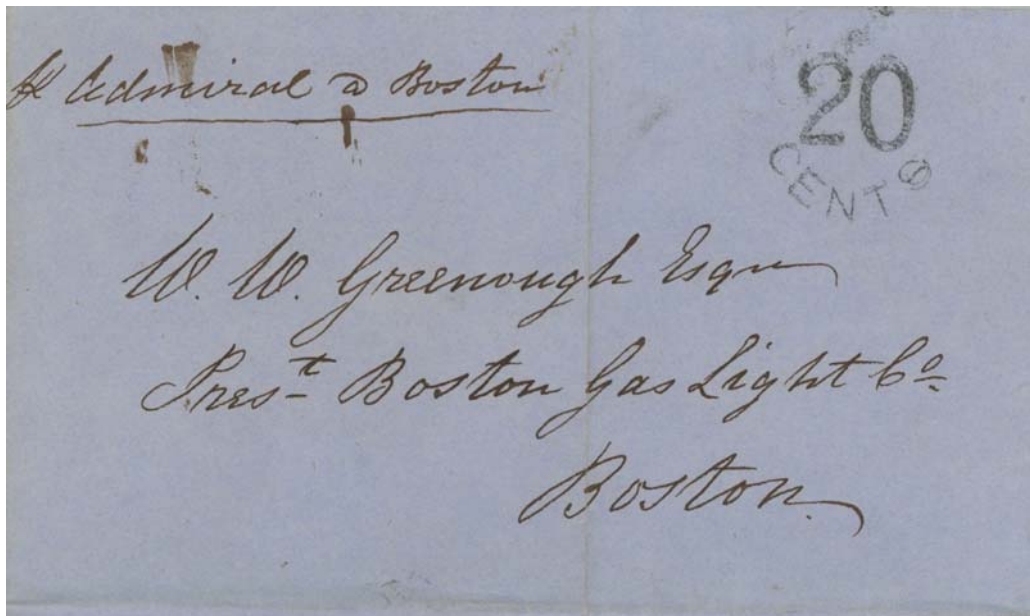 Admiral a Boston
20
CENTS
W. W. Greenough Esqr
Prest Boston Gas Light Co
Boston.